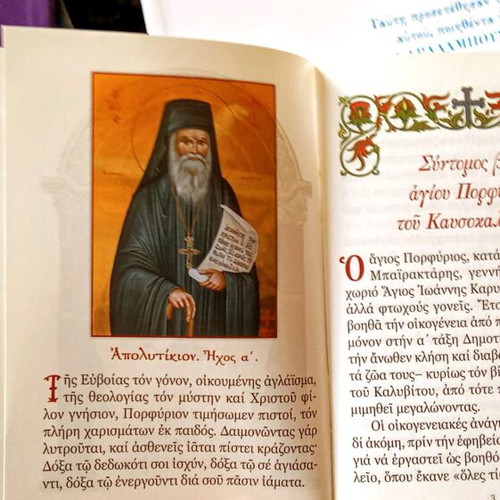 Ταύτη προσετέθησαν
αὐτοῦ, ποιηθέντα
Ἀπολυτίκιον. Ἦχος α΄.
Τῆς Εὐβοίας τόν γόνον, οἰκουμένης ἀγλάϊσμα,
τῆς θεολογίας τόν μύστην καί Χριστοῦ φί-
λον γνήσιον, Πορφύριον τιμήσωμεν πιστοί, τόν
πλήρη χαρισμάτων ἐκ παιδός. Δαιμονῶντας γάρ
λυτροῦται, καί ἀσθενεῖς ἰᾶται πίστει κράζοντας·
Δόξα τῷ δεδωκότι σοι ἰσχύν, δόξα τῷ σέ ἁγιάσα-
ντι, δόξα τῷ ἐνεργοῦντι διά σοῦ πᾶσιν ἰάματα.
Σύντομος β
ἁγίου Πορφυ
τοῦ Καυσοκαλ
Ὁ ἅγιος Πορφύριος, κατά
Μπαϊρακτάρης, γεννή
χωριό Ἅγιος Ἰωάννης Καρυ
ἀλλά φτωχούς γονεῖς. Ἔτσ
βοηθᾶ τήν οἰκογένεια ἀπό π
μόνον στήν α΄ τάξη Δημοτ
τήν ἄνωθεν κλήση καί διαβά
τά ζῶα τους– κυρίως τόν βί
τοῦ Καλυβίτου, ἀπό τότε π
μιμηθεῖ μεγαλώνοντας.
Οἱ οἰκογενειακές ἀνάγκ
δί ἀκόμη, πρίν τήν ἐφηβεία
γιά νά ἐργαστεῖ ὡς βοηθό
λεῖο, ὅπου ἔκανε «ὅλες τί
3